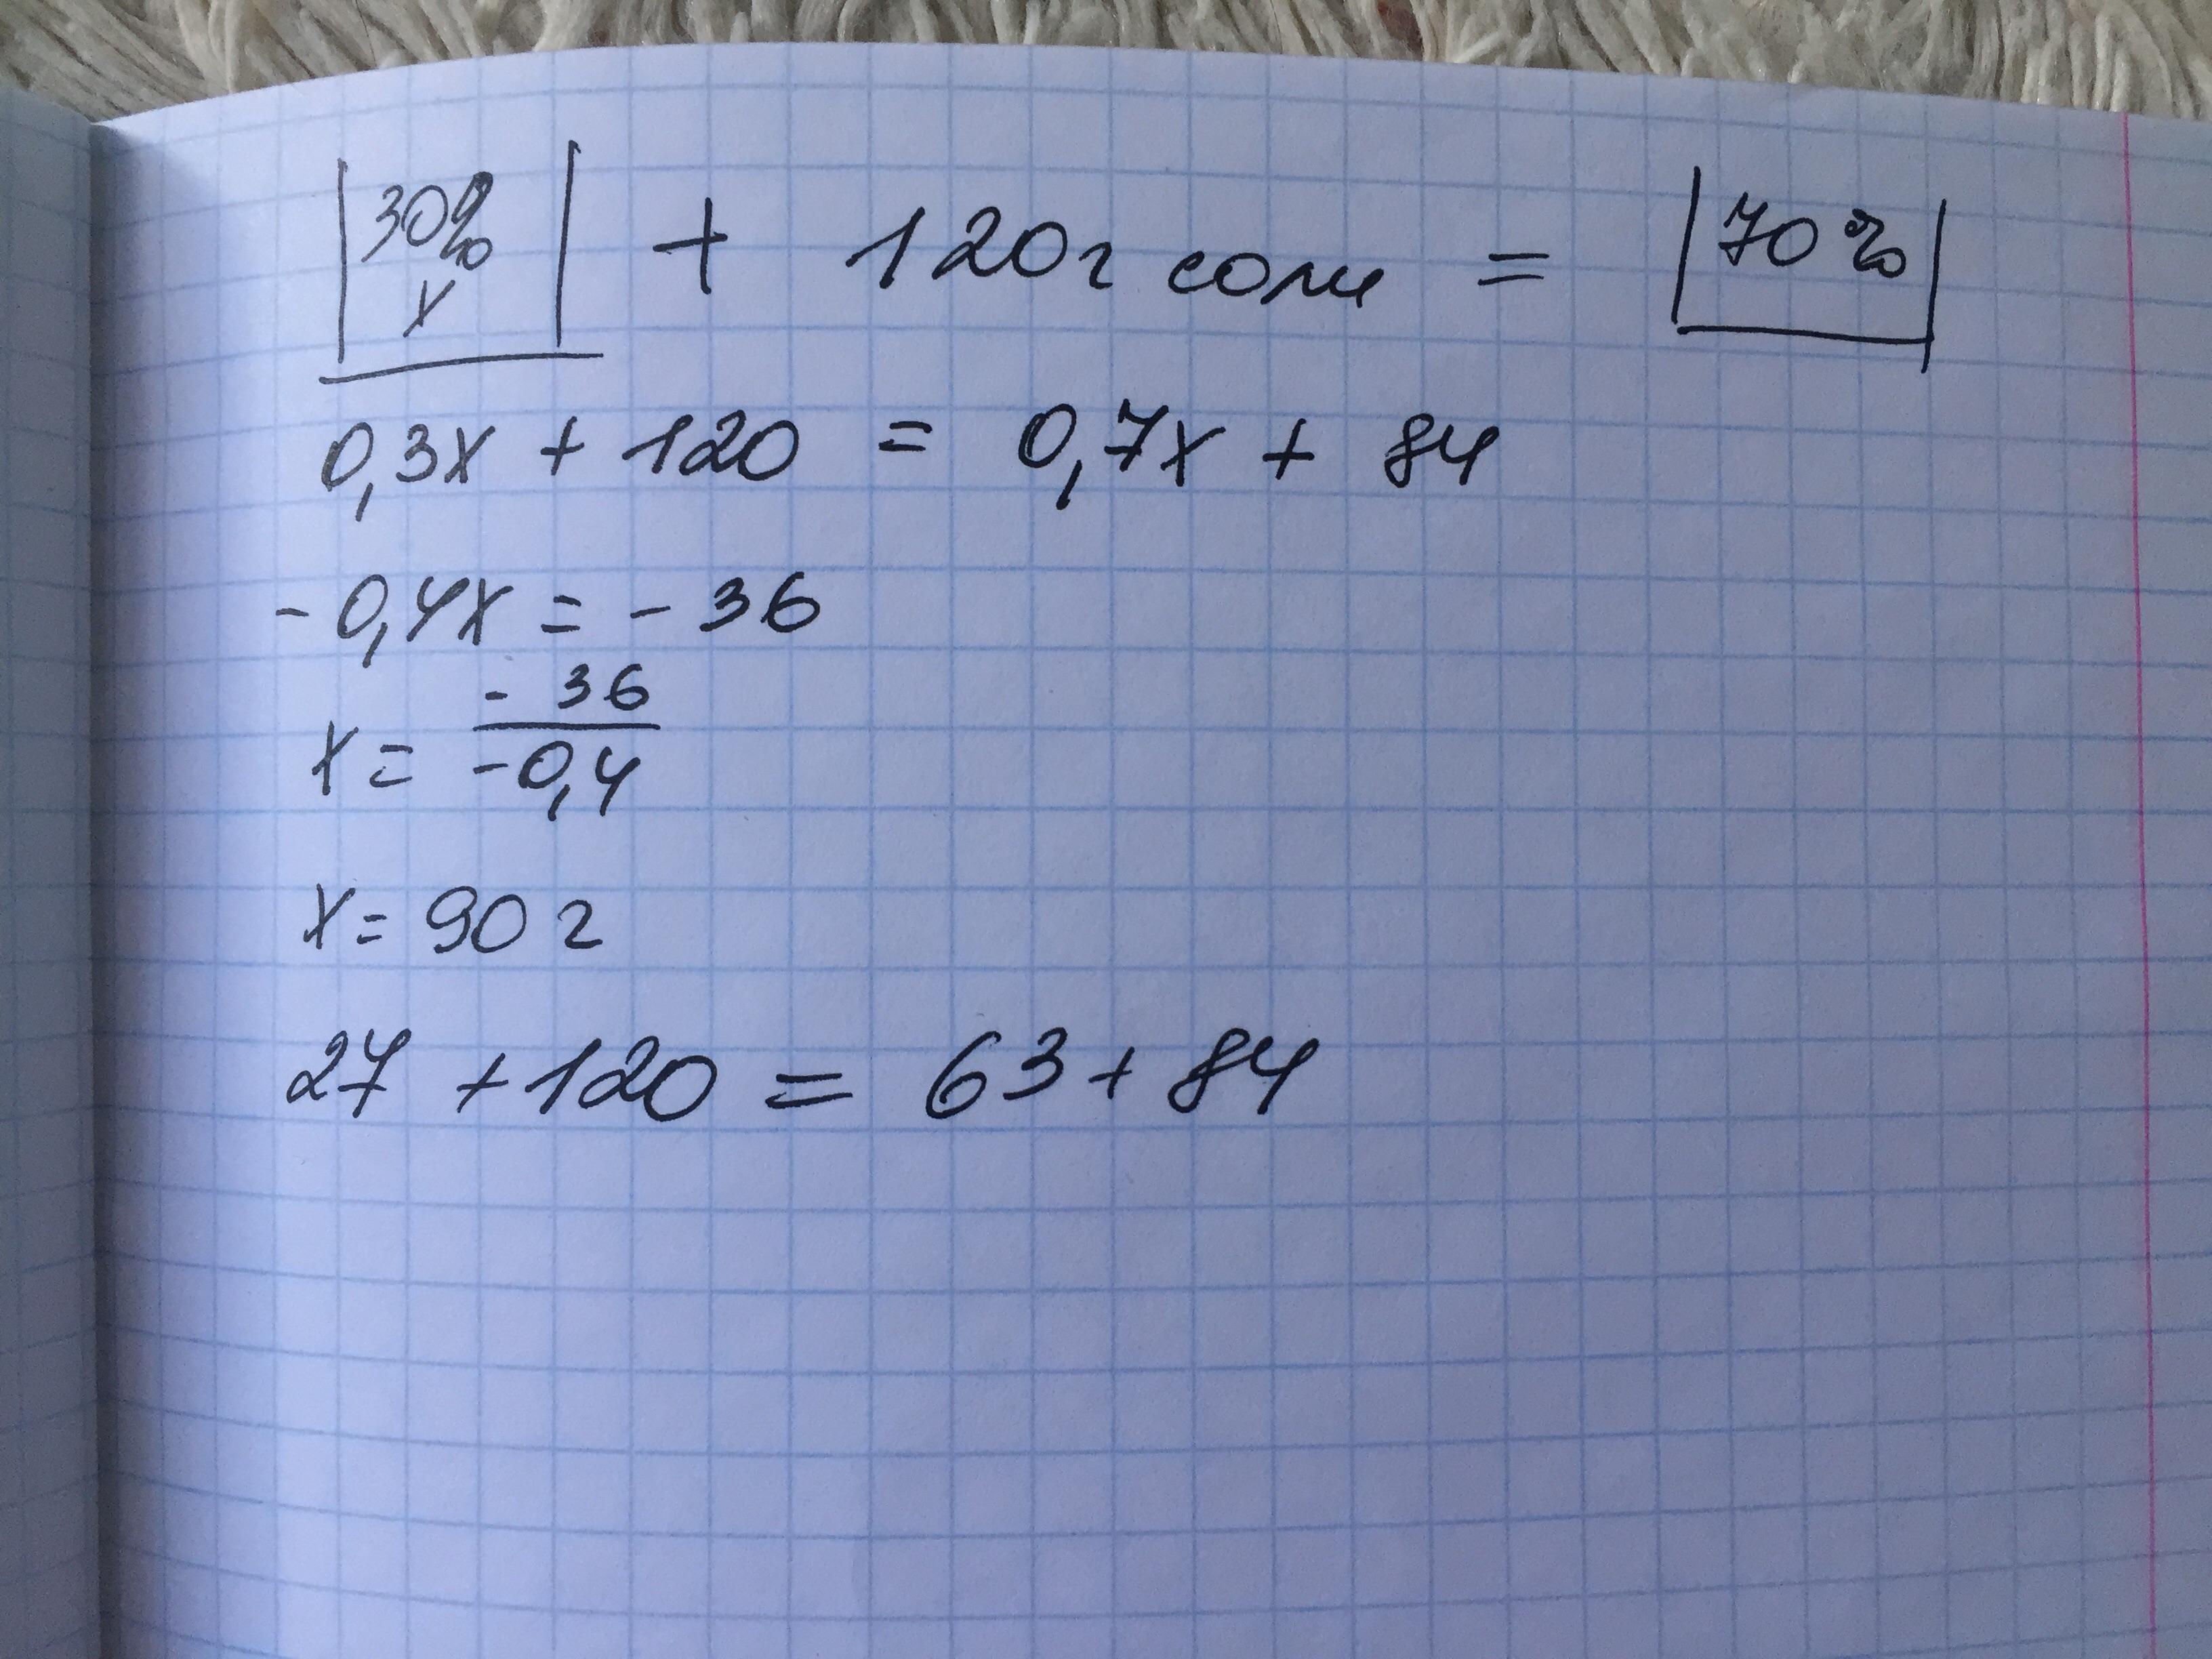 30% + 120г соли = 70%
x
0,3x + 120 = 0,7x + 84
-0,4x = - 36
x = - 36 / -0,4
x = 90 г
27 + 120 = 63 + 84